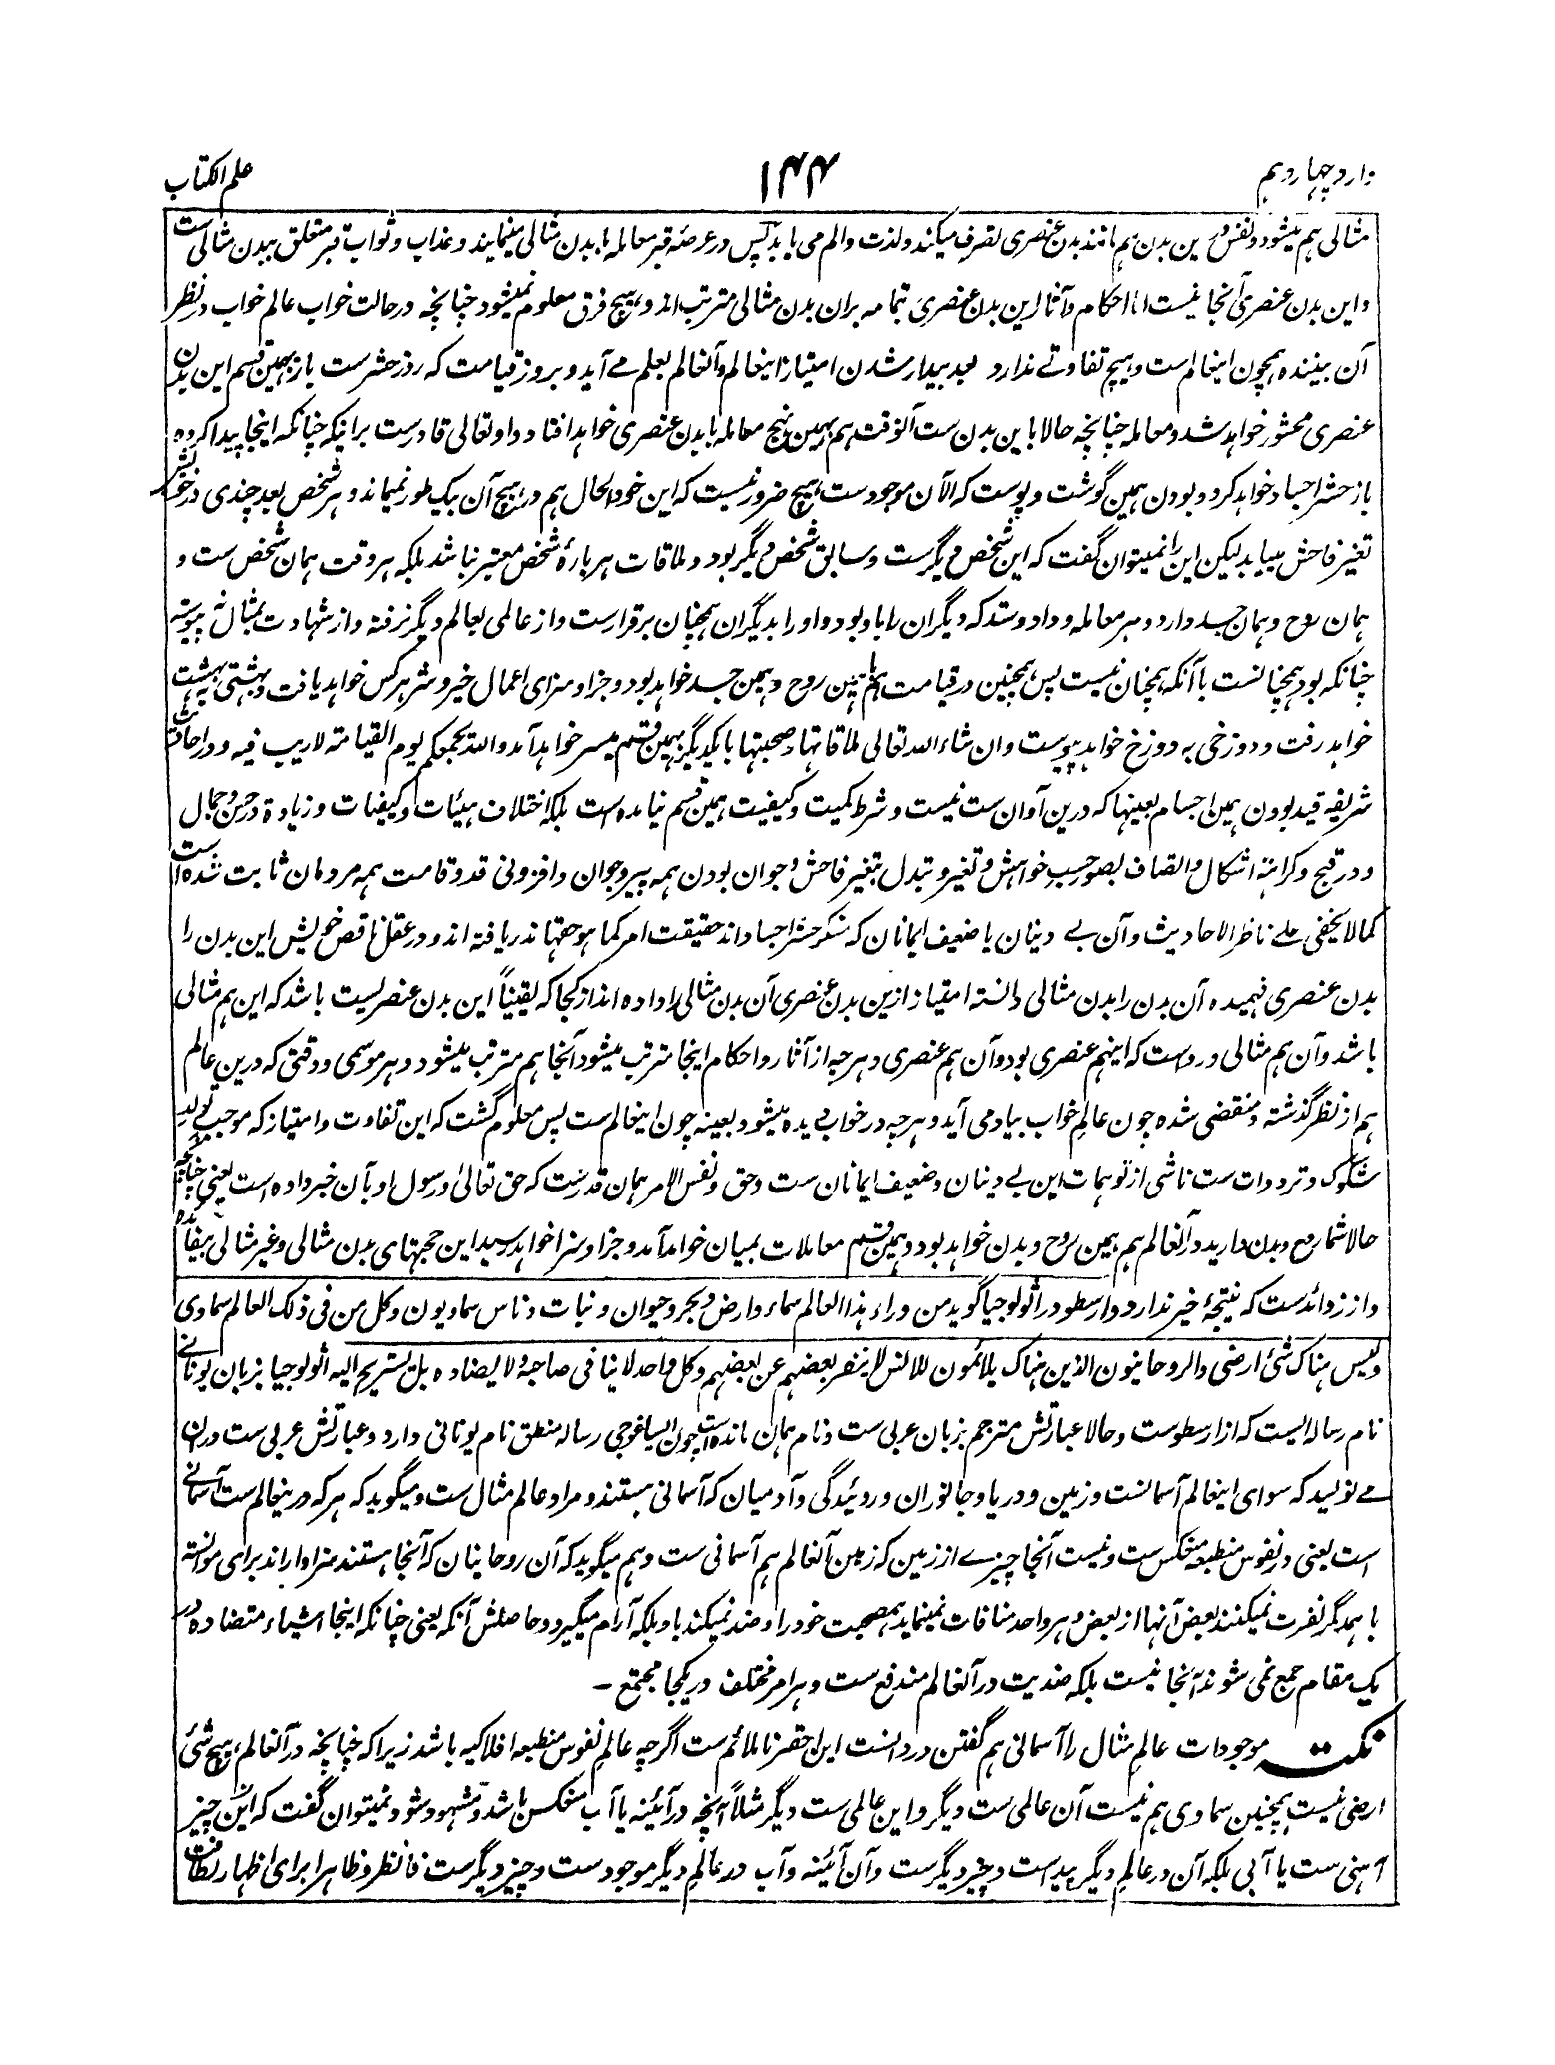 وارد چهاردهم ۱۴۴ علم الکتاب
مثالی هم میشود و نفس درین بدن هم مانند بدن عنصری تصرف میکند و لذت و الم می یابد پس در عرصهٔ قبر معامله با بدن مثالی مینمایند و عذاب و ثواب قبر متعلق ببدن مثالی ست
و این بدن عنصری آنجا نیست اما احکام و آثار این بدن عنصری بتمامه بران بدن مثالی مترتب اند و هیچ فرق معلوم نمیشود چنانچه در حالت خواب عالم خواب در نظر
آن بیننده همچون اینعالم ست و هیچ تفاوتے ندارد بعد بیدار شدن امتیاز اینعالم و آنعالم بعلم مے آید و بروز قیامت که روز حشر ست باز بهمین قسم این بدن
عنصری محشور خواهد شد و معامله چنانچه حالا باین بدن ست آنوقت هم بهمین نهج معامله با بدن عنصری خواهد افتاد و او تعالی قادرست برانیکه چنانکه اینجا پیدا کرده
باز حشر اجساد خواهد کرد و بودن همین گوشت و پوست که الآن موجودست هیچ ضرور نیست که این خود الحال هم در هیچ آن بیک طور نمیماند و هر شخص بعد چندی در خود
تغیر فاحش مییابد لیکن این را نمیتوان گفت که این شخص دیگرست و سابق شخص دیگر بود و ملاقات هر بارهٔ شخص معتبر نباشد بلکه هر وقت همان شخص ست و
همان روح و همان جسد دارد و هر معامله و داد و ستد که دیگران را با او بود و او را بدیگران همچنان برقرارست و از عالمی بعالم دیگر نرفته و از شهادت بمثال نه پیوسته
چنانکه بود همچنانست با آنکه همچنان نیست پس همچنین در قیامت هم همین روح و همین جسد خواهد بود و جزا و سزای اعمال خیر و شر هر کس خواهد یافت و بهشتی به بهشت
خواهد رفت و دوزخی به دوزخ خواهد پیوست و ان شاء الله تعالی ملاقاتها و صحبتها با یکدیگر بهمین قسم میسر خواهد آمد والله یجمعکم یوم القیامة لاریب فیه و در احادیث
شریفه قید بودن همین اجسام بعینها که درین آوان ست نیست و شرط کمیت و کیفیت همین قسم نیامده است بلکه اختلاف هیئات و کیفیات و زیادة در حسن و جمال
و در قبح و کراهتة اشکال و اتصاف بصور حسب خواهش و تغیر و تبدل بتغیر فاحش و جوان بودن همه پیر و جوان و افزونی قد و قامت همه مردمان ثابت شده است
کما لا یخفی علے ناظر الاحادیث و آن بے دینان یا ضعیف ایمانان که منکر حشر اجساد اند حقیقت امر کما هو حقها ندریافته اند و در عقل ناقص خویش این بدن را
بدن عنصری فهمیده آن بدن را بدن مثالی دانسته امتیاز ازین بدن عنصری آن بدن مثالی را داده اند از کجا که یقیناً این بدن عنصریست باشد که این هم مثالی
باشد و آن هم مثالی و رواست که اینهم عنصری بود و آن هم عنصری و هرچه از آثار و احکام اینجا مترتب میشود آنجا هم مترتب میشود و هر موسمی و وقتی که درین عالم
هم از نظر گذشته و منقضی شده چون عالم خواب بیاد می آید و هرچه در خواب دیده میشود بعینه چون اینعالم ست پس معلوم گشت که این تفاوت و امتیاز که موجب تولید
شکوک و ترددات ست ناشی از توهمات این بے دینان و ضعیف ایمانان ست و حق و نفس الامر همان قدرست که حق تعالیٰ و رسول او بآن خبر داده است یعنی چنانچه
حالا شما روح و بدن دارید در آنعالم هم همین روح و بدن خواهد بود و همین قسم معاملات بمیان خواهد آمد و جزا و سزا خواهد رسید این حجتهای بدن مثالی و غیر مثالی بیفائده
و از زوائدست که نتیجهٔ خیر ندارد و ارسطو در اثولوجیا گوید من وراء هذا العالم سماء و ارض و بحر و حیوان و نبات و ناس سماویون و کل من فی ذلک العالم سماوی
و لیس هناک شیٔ ارضی و الروحانیون الذین هناک یلائمون للانس لا ینفر بعضهم عن بعضهم و کل واحد لا ینافی صاحبه و لا یضاده بل یستریح الیه اثولوجیا بزبان یونانے
نام رساله ایست که از ارسطوست و حالا عبارتش مترجم بزبان عربی ست و نام همان مانده است چون ایساغوجی رساله منطق نام یونانی دارد و عبارتش عربی ست دران
مے نویسد که سوای اینعالم آسمانست و زمین و دریا و جانوران و روئیدگی و آدمیان که آسمانی هستند و مراد عالم مثال ست و میگوید که هر که درینعالم ست آسمانے
است یعنی در نفوس منطبعه منعکس ست و نیست آنجا چیزے از زمین که زمین آنعالم هم آسمانی ست و هم میگوید که آن روحانیان که آنجا هستند سزاوار اند برای موانسة
با همدگر نفرت نمیکنند بعض آنها از بعض و هر واحد منافات نمینماید همصحبت خود را و ضد نمیکند باو بلکه آرام میگیرد و حاصلش آنکه یعنی چنانکه اینجا اشیاء متضاده در
یک مقام جمع نمی شوند آنجا نیست بلکه ضدیت در آنعالم مندفع ست و هر امر مختلف در یکجا مجتمع ـ
نکته موجودات عالم مثال را آسمانی هم گفتن در دانست این احقر نا ملائم ست اگرچه عالم نفوس منطبعه افلاکیه باشد زیرا که چنانچه در آنعالم هیچ شئ
ارضی نیست همچنین سماوی هم نیست آن عالمی ست دیگر و این عالمی ست دیگر مثلاً آنچه در آئینه یا آب منعکس باشد و مشهود شود نمیتوان گفت که این چیز
آهنی ست یا آبی بلکه آن در عالم دیگر پیداست و چیز دیگرست و آن آئینه و آب در عالم دیگر موجودست و چیز دیگرست فانظر و ظاهرا برای اظهار لطافت